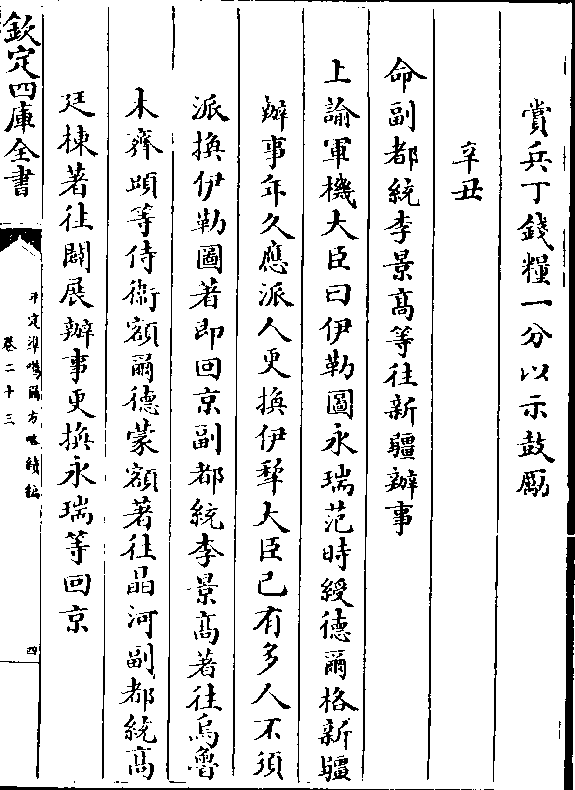 賞兵丁錢糧一分以示鼓勵
辛丑
命副都統李景高等往新疆辦事
上諭軍機大臣曰伊勒圖永瑞范時綬德爾格新疆
辦事年久應派人更換伊犂大臣已有多人不須
派換伊勒圖著即回京副都統李景高著往烏魯
木齊䪴等侍衛額爾德蒙額著往晶河副都統高
廷棟著往闢展辦事更換永瑞等回京
欽定四庫全書
平定準噶爾方略續編
卷二十三
四